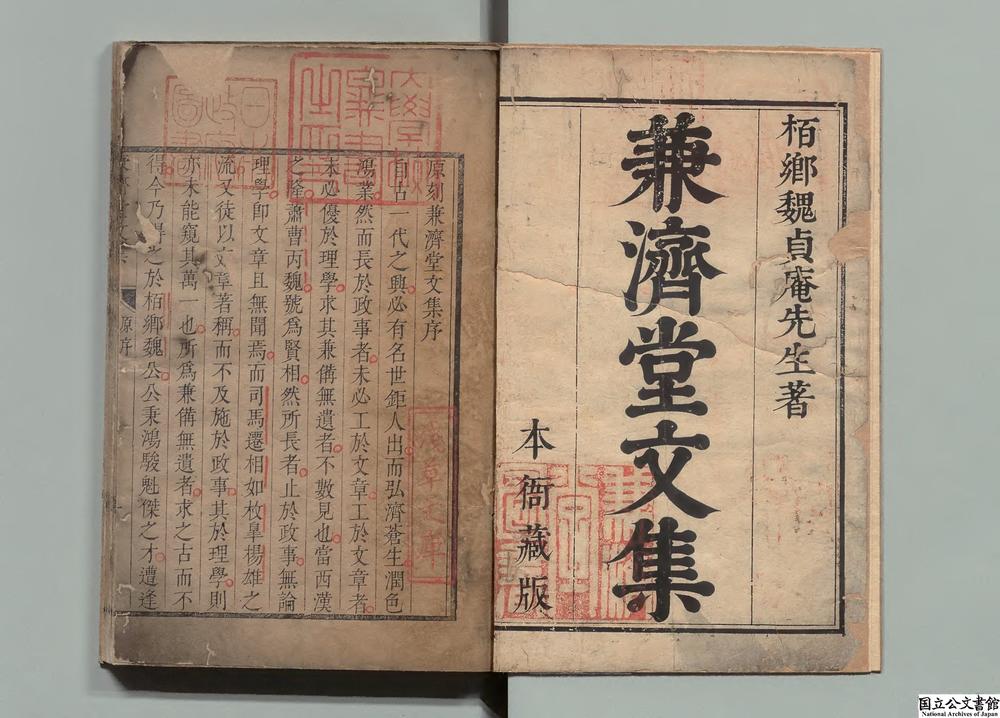 栢鄉魏貞庵先生著
兼濟堂文集
本衙藏版
原刻兼濟堂文集序
自古一代之興必有名世鉅人出而弘濟蒼生潤色
鴻業然而長於政事者未必工於文章工於文章者
未必優於理學求其兼備無遺者不數見也當西漢
之隆蕭曹丙魏號爲賢相然所長者止於政事無論
理學卽文章且無聞焉而司馬遷相如枚皐揚雄之
流又徒以文章著稱而不及施於政事其於理學則
亦未能窺其萬一也所爲兼備無遺者求之古而不
得今乃得之於栢鄉魏公公秉鴻駿魁傑之才遭逢
原序
国立公文書館
National Archives of Japan